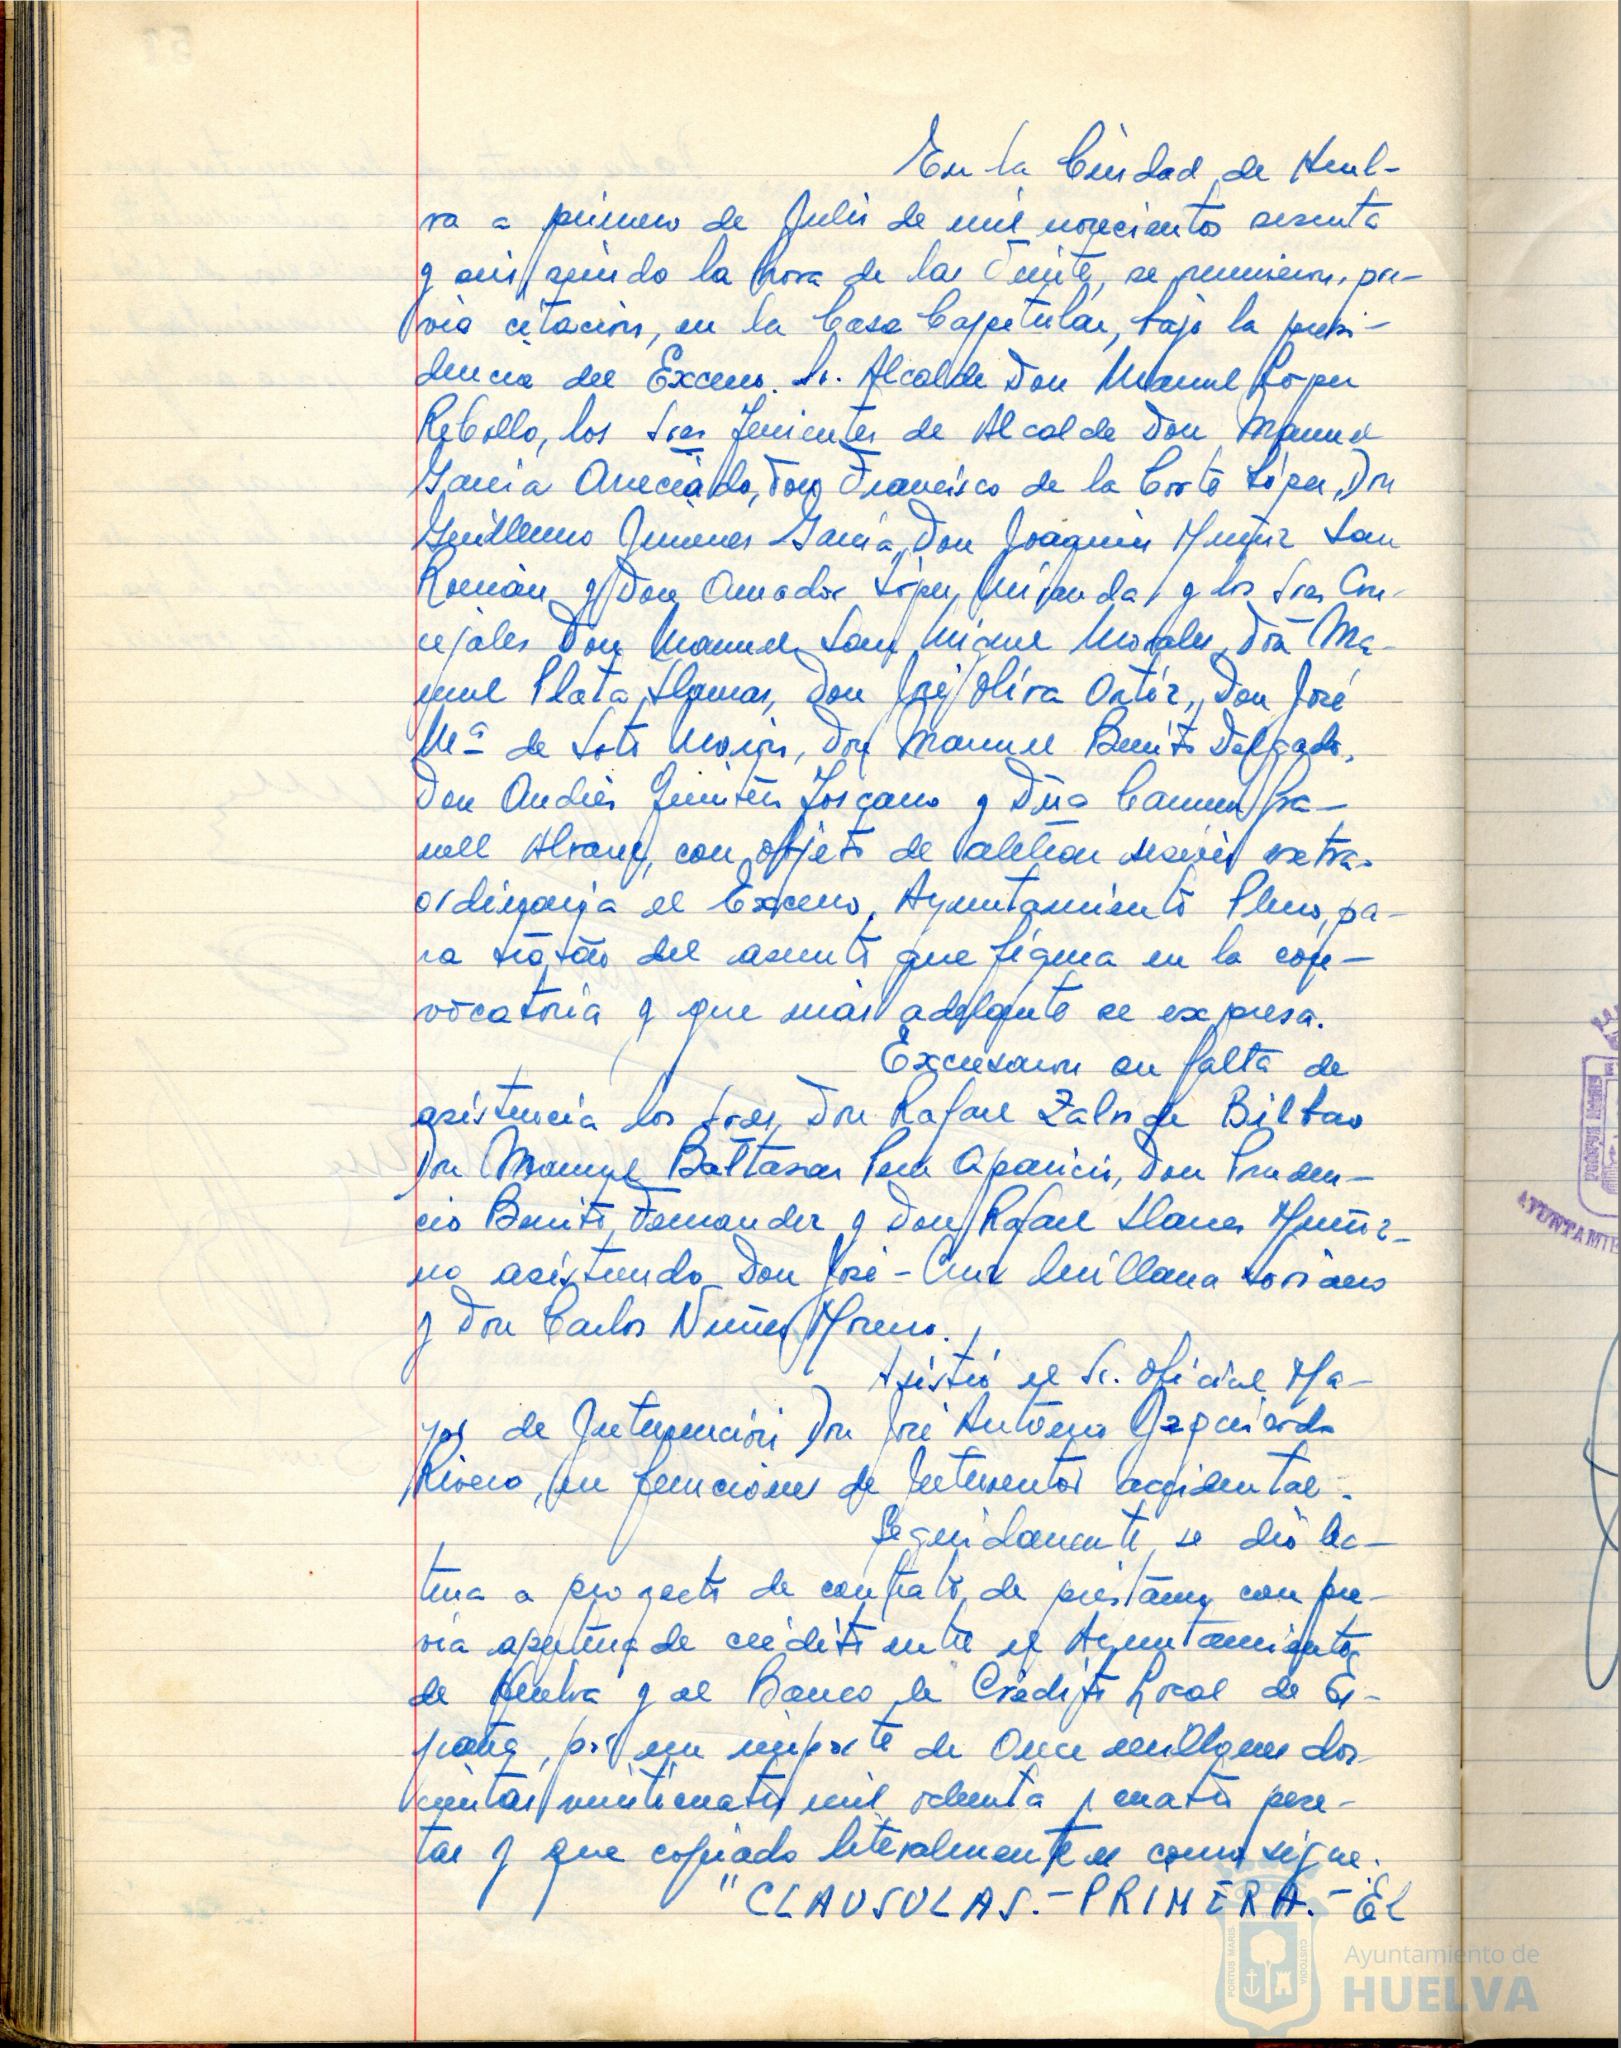 En la Ciudad de Huel-
va a primero de Julio de mil novecientos sesenta
y seis, siendo la hora de las veinte, se reunieron, pre-
via citación, en la Casa Capitular, bajo la presi-
dencia del Excmo. Sr. Alcalde Don Manuel López
Rebollo, los Sres Tenientes de Alcalde Don Manuel
García Aneciado, Don Francisco de la Corte López, Don
Guillermo Jiménez García, Don Joaquín Muñiz San
Román y Don Amador López Miranda, y los Sres Con-
cejales Don Manuel San Miguel Morales, Don Ma-
nuel Plata Llamas, Don José Oliva Ortíz, Don José
Mª de Soto Morón, Don Manuel Benito Delgado,
Don Andrés Quintero Toscano y Dña Carmen Gra-
nell Alvarez, con objeto de celebrar sesión extra-
ordinaria el Excmo. Ayuntamiento Pleno, pa-
ra tratar del asunto que figura en la con-
vocatoria y que más adelante se expresa.
Excusaron su falta de
asistencia los Sres, Don Rafael Zalvide Bilbao
Don Manuel Baltasar Pera Aparicio, Don Pruden-
cio Benito Fernandez y Don Rafael Llanes Muñiz-
no asistiendo Don José-Cruz Muillana Soriano
y Don Carlos Núñez Moreno.
Asistió el Sr. Oficial Ma-
yor de Intervención Don José Antonio Izquierdo
Rivero, en funciones de Interventor accidental.
Seguidamente, se dió lec-
tura a proyecto de contrato de préstamo con pre-
via apertura de crédito entre el Ayuntamiento
de Huelva y el Banco de Crédito Local de Es-
paña, por un importe de Once millones dos-
cientas veinticuatro mil ochenta y cuatro pese-
tas y que copiado literalmente es como sigue.
"CLAUSULAS.-PRIMERA.- El
AYUNTAMIE
PORTUS MARIS
CUSTODIA
Ayuntamiento de
HUELVA